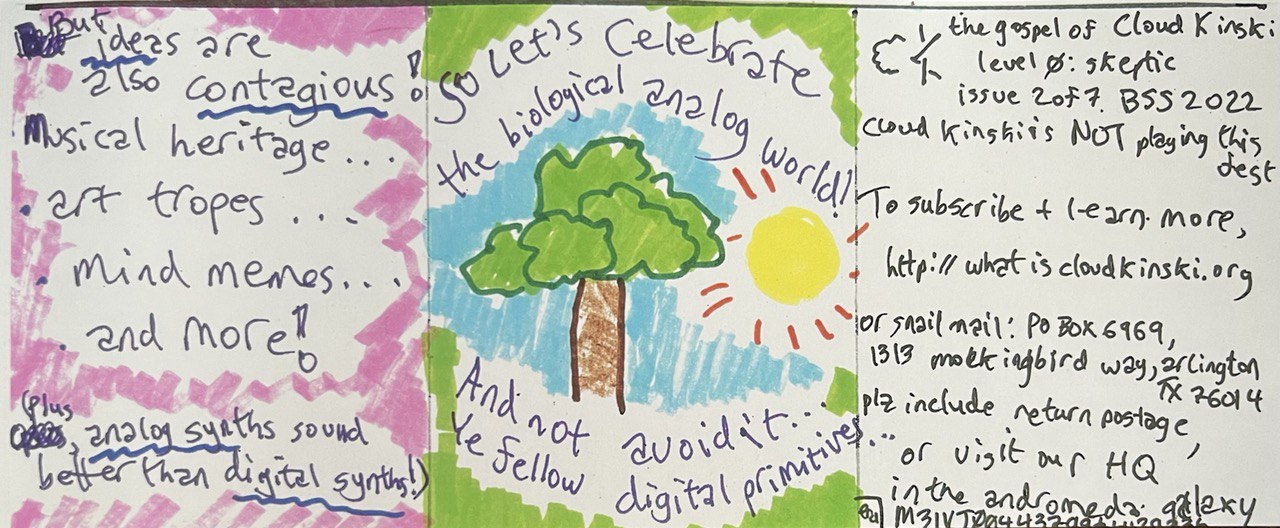 But
ideas are
also contagious!
Musical heritage...
• art tropes ...
• mind memes...
• and more!
(Plus
, analog synths sound
better than digital synths!)
So Let's Celebrate
the biological analog world!
And not avoid it...
Ye fellow digital primitives...
the gospel of Cloud Kinski
level ø: skeptic
issue 2 of 7. BSS 2022
Cloud Kinski is NOT playing this
fest
To subscribe + learn more,
http://whatiscloudkinski.org
or snail mail: PO BOX 6969,
1313 mockingbird way, arlington
TX 76014
plz include return postage,
or visit our HQ
in the andromeda galaxy